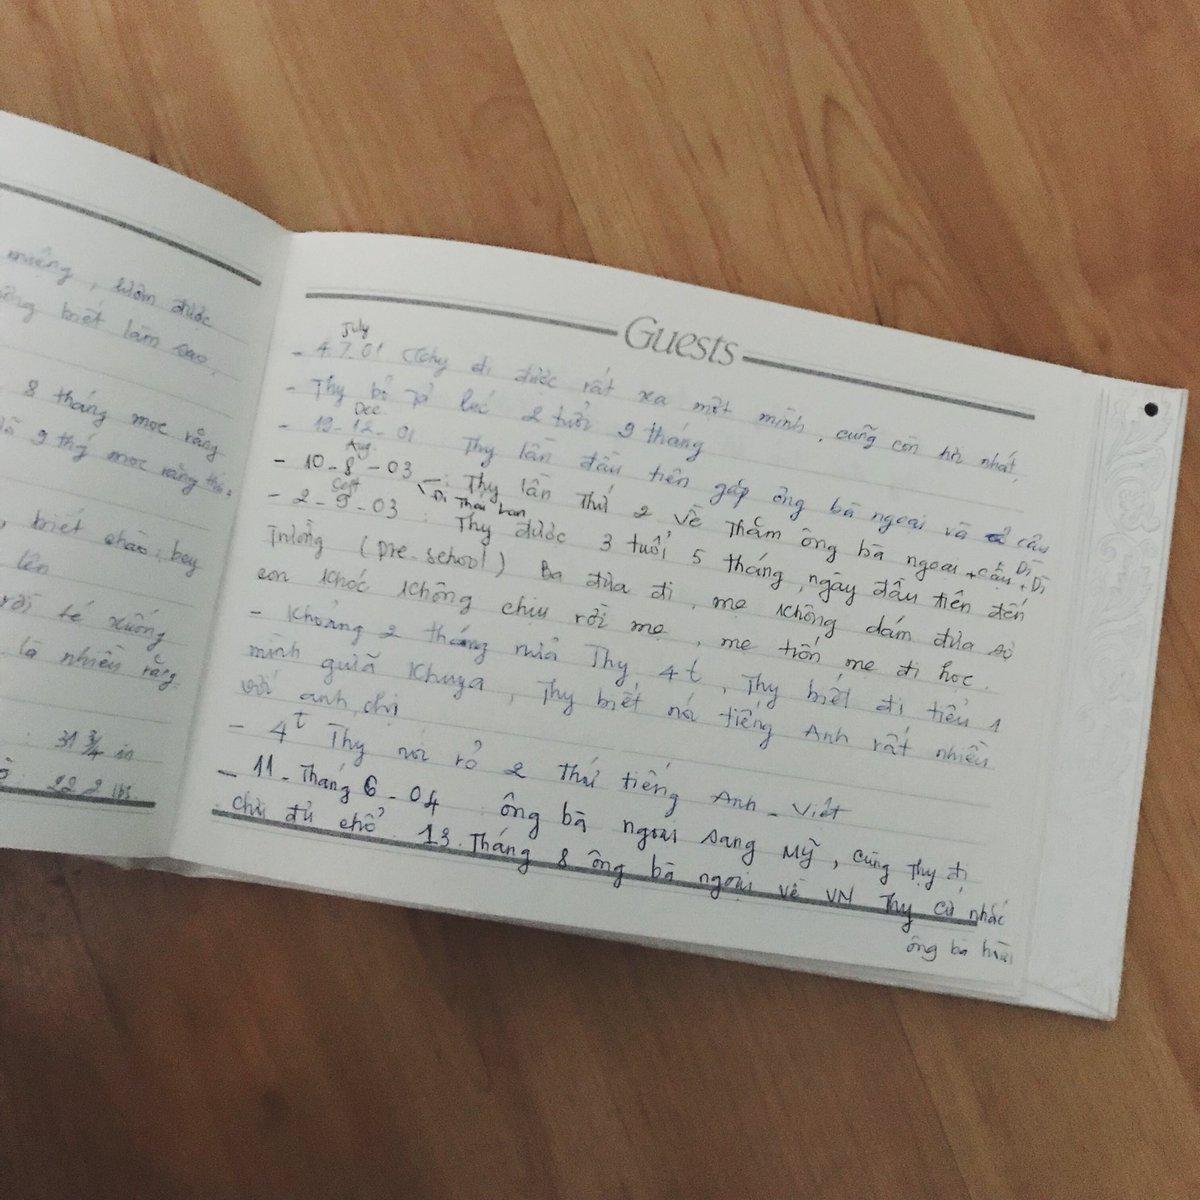 miếng, lượm được
biết làm sao.
8 tháng mọc răng
9 thg mọc răng
biết chào, bey
lên
té xuống
là nhiều răng
31 3/4 in
22.2 lbs
Guests
July
- 4.7.01 Thy đi được rất xa một mình, cũng còn
- Thy bỏ tả lúc 2 tuổi 9 tháng
Dec
- 19-12-01 Thy lần đầu tiên gặp ông bà ngoại và cậu Dì
Aug
- 10-8-03 : Thy lần thứ 2 về thăm ông bà ngoại + cậu + Dì
Đi Thái Lan
Sept
- 2-9-03 : Thy được 3 tuổi 5 tháng, ngày đầu tiên đến
trường (pre-school) Ba đưa đi, mẹ không dám đưa sợ
con khóc không chịu rời mẹ, mẹ trốn mẹ đi học.
- Khoảng 2 tháng nữa Thy 4t, Thy biết đi tiểu 1
mình giữa khuya, Thy biết nói tiếng Anh rất nhiều
với anh chị
- 4t Thy nói rỏ 2 thứ tiếng Anh - Việt
- 11 - Tháng 6 - 04 ông bà ngoại sang Mỹ, cùng Thy đi
chơi đủ chổ. 13. Tháng 8 ông bà ngoại về VN Thy cứ nhắc
ông bà hoài